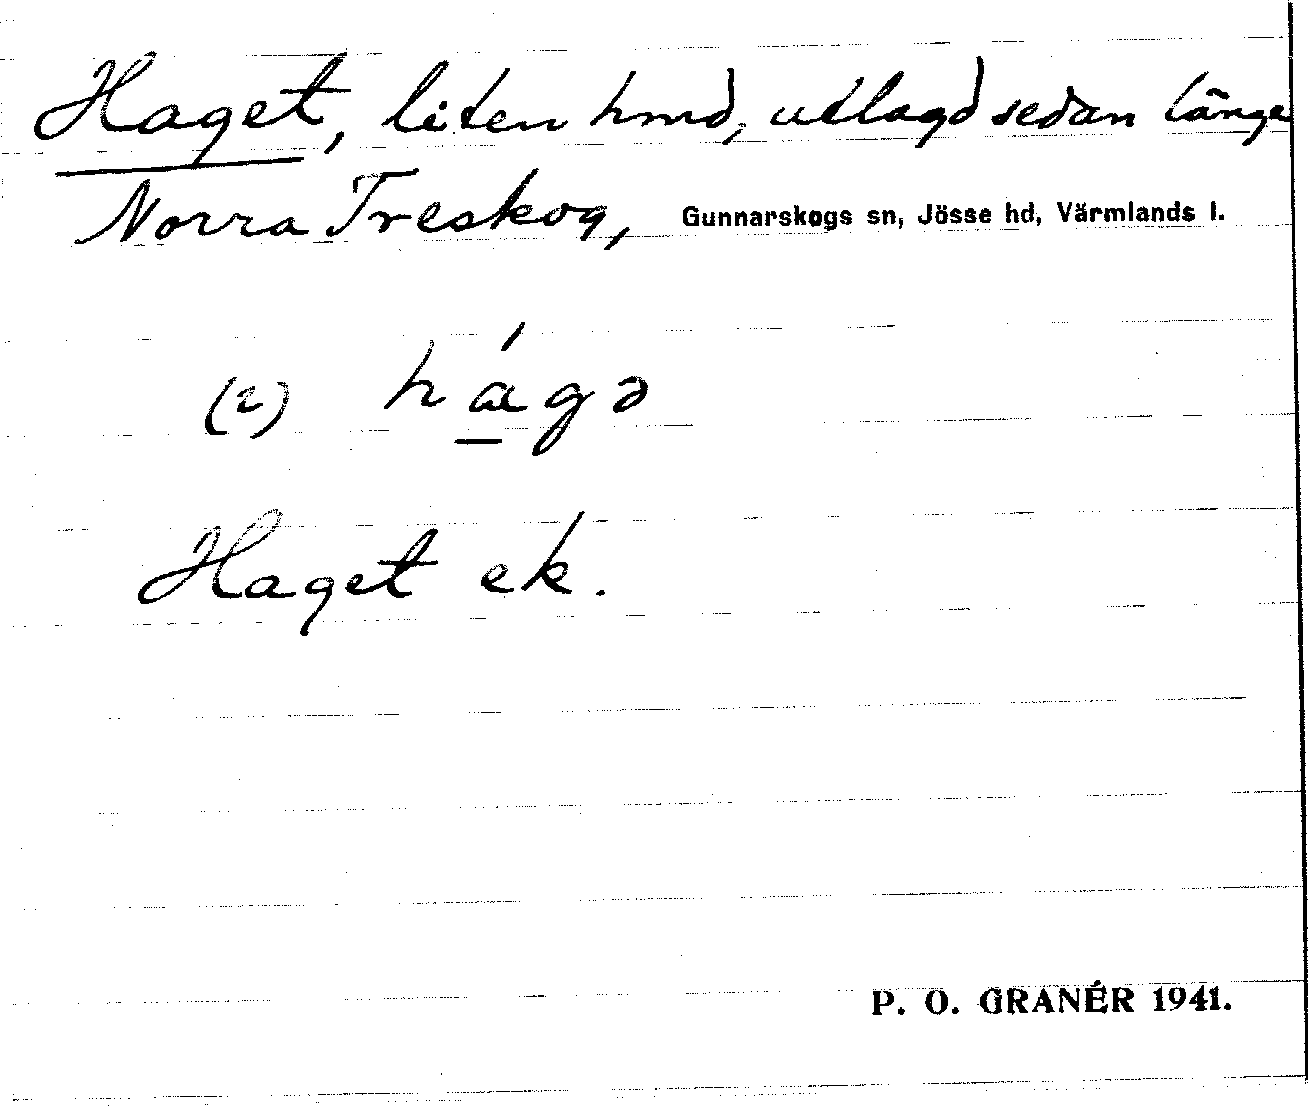 Haget, liten hmd, utlagd sedan länge
Norra Treskog, Gunnarskogs sn, Jösse hd, Värmlands l.
(2) há̱gə
Haget ek.
P. O. GRANÉR 1941.